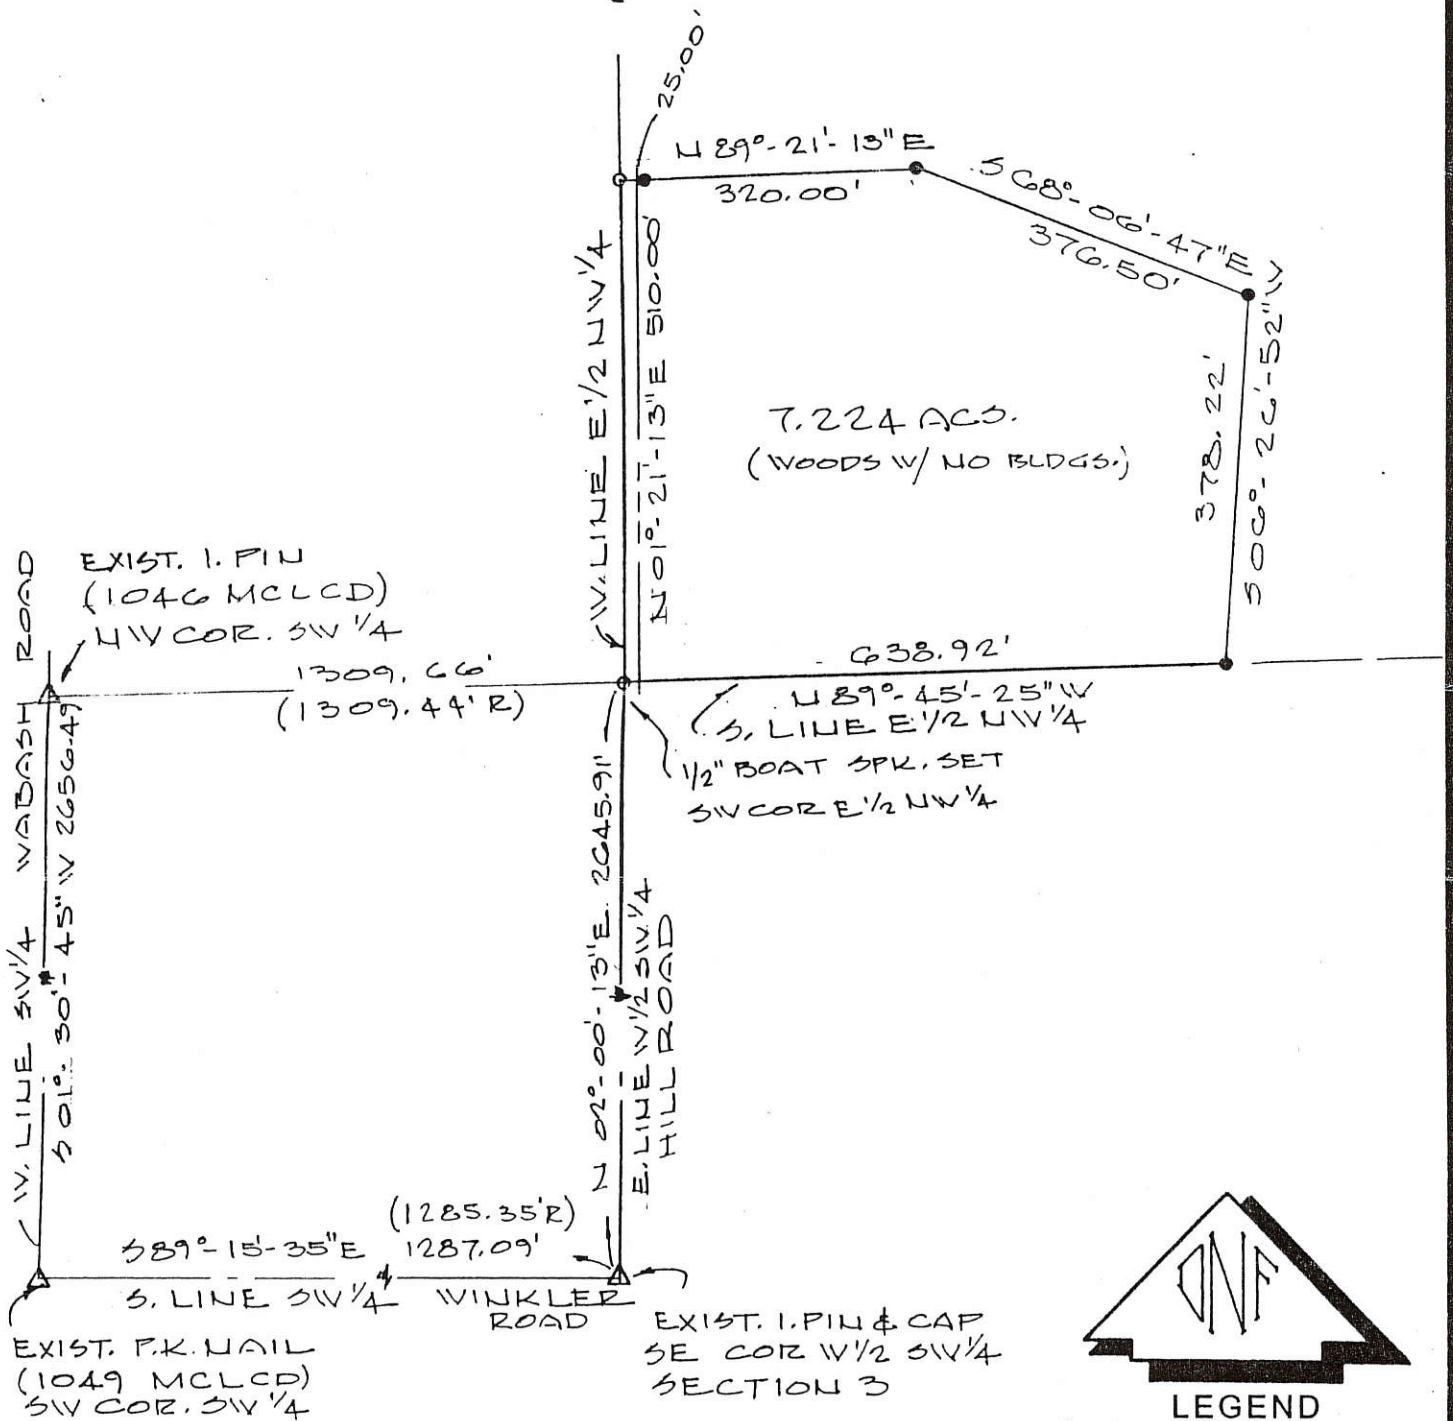 25.00'
N 89°-21'-13" E
320.00'
S 68°-06'-47" E
376.50'
W. LINE E 1/2 NW 1/4
N 01°-21'-13" E 510.00'
7.224 ACS.
(WOODS W/ NO BLDGS.)
378.22'
S 06°-26'-52" W
EXIST. I. PIN
(1046 MCLCD)
NW COR. SW 1/4
1309.66'
(1309.44' R)
638.92'
N 89°-45'-25" W
S. LINE E 1/2 NW 1/4
1/2" BOAT SPK. SET
SW COR E 1/2 NW 1/4
W. LINE SW 1/4 WABASH ROAD
S 01°-30'-45" W 2656.49
N 02°-00'-13" E 2645.91'
E. LINE W 1/2 SW 1/4
HILL ROAD
(1285.35' R)
S 89°-15'-35" E 1287.09'
S. LINE SW 1/4 WINKLER
ROAD
EXIST. P.K. NAIL
(1049 MCLCD)
SW COR. SW 1/4
EXIST. I. PIN & CAP
SE COR W 1/2 SW 1/4
SECTION 3
DNF
LEGEND